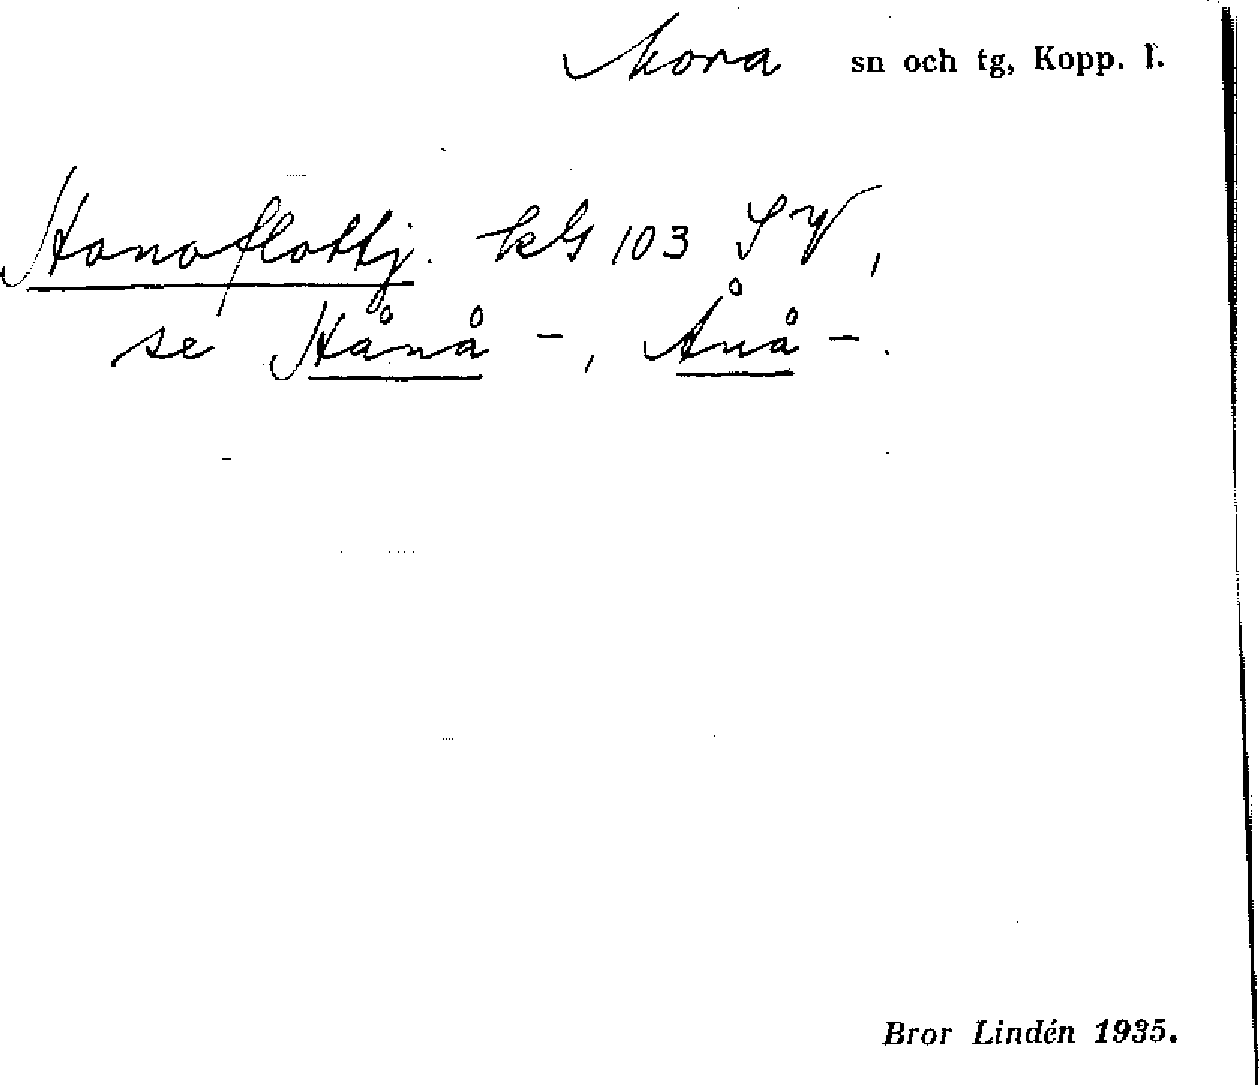 Mora sn och tg, Kopp. l.
Hanaflottj. kbl 103 SV,
se Hånå -, Ånå -.
Bror Lindén 1935.